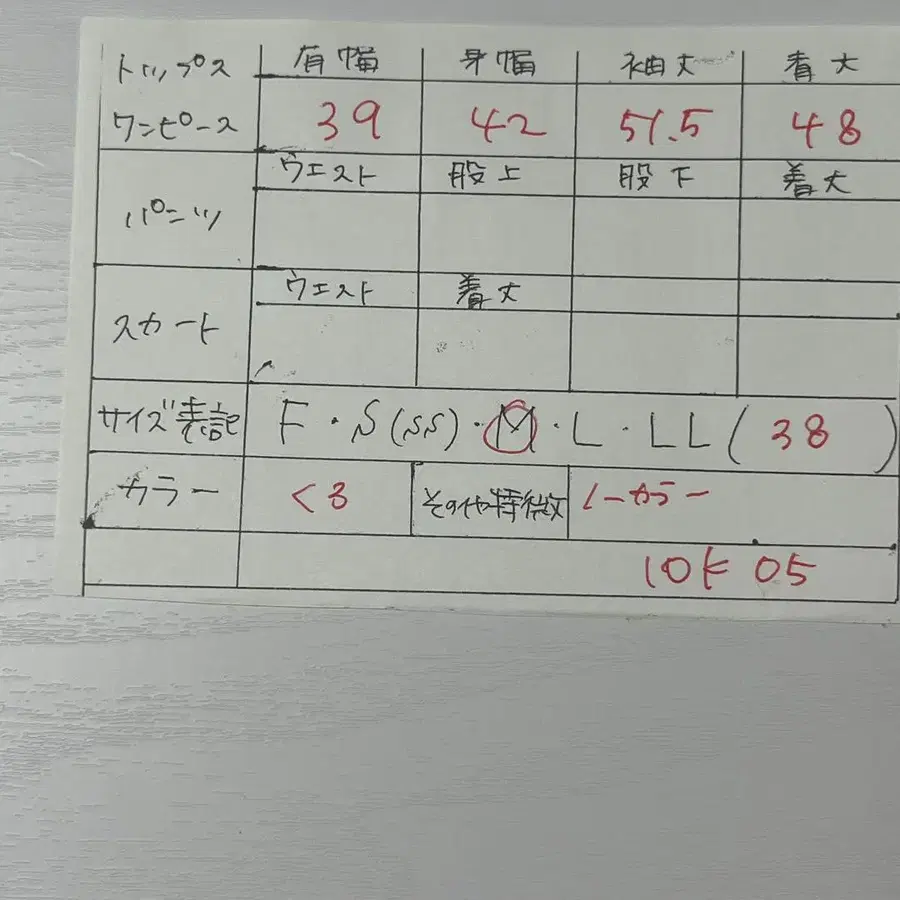 トップス 肩幅 身幅 袖丈 着丈
ワンピース 39 42 51.5 48
ウエスト 股上 股下 着丈
パンツ
ウエスト 着丈
スカート
サイズ表記 F・S(SS)・M・L・LL(38)
カラー くろ その他特徴 ノーカラー
10K 05